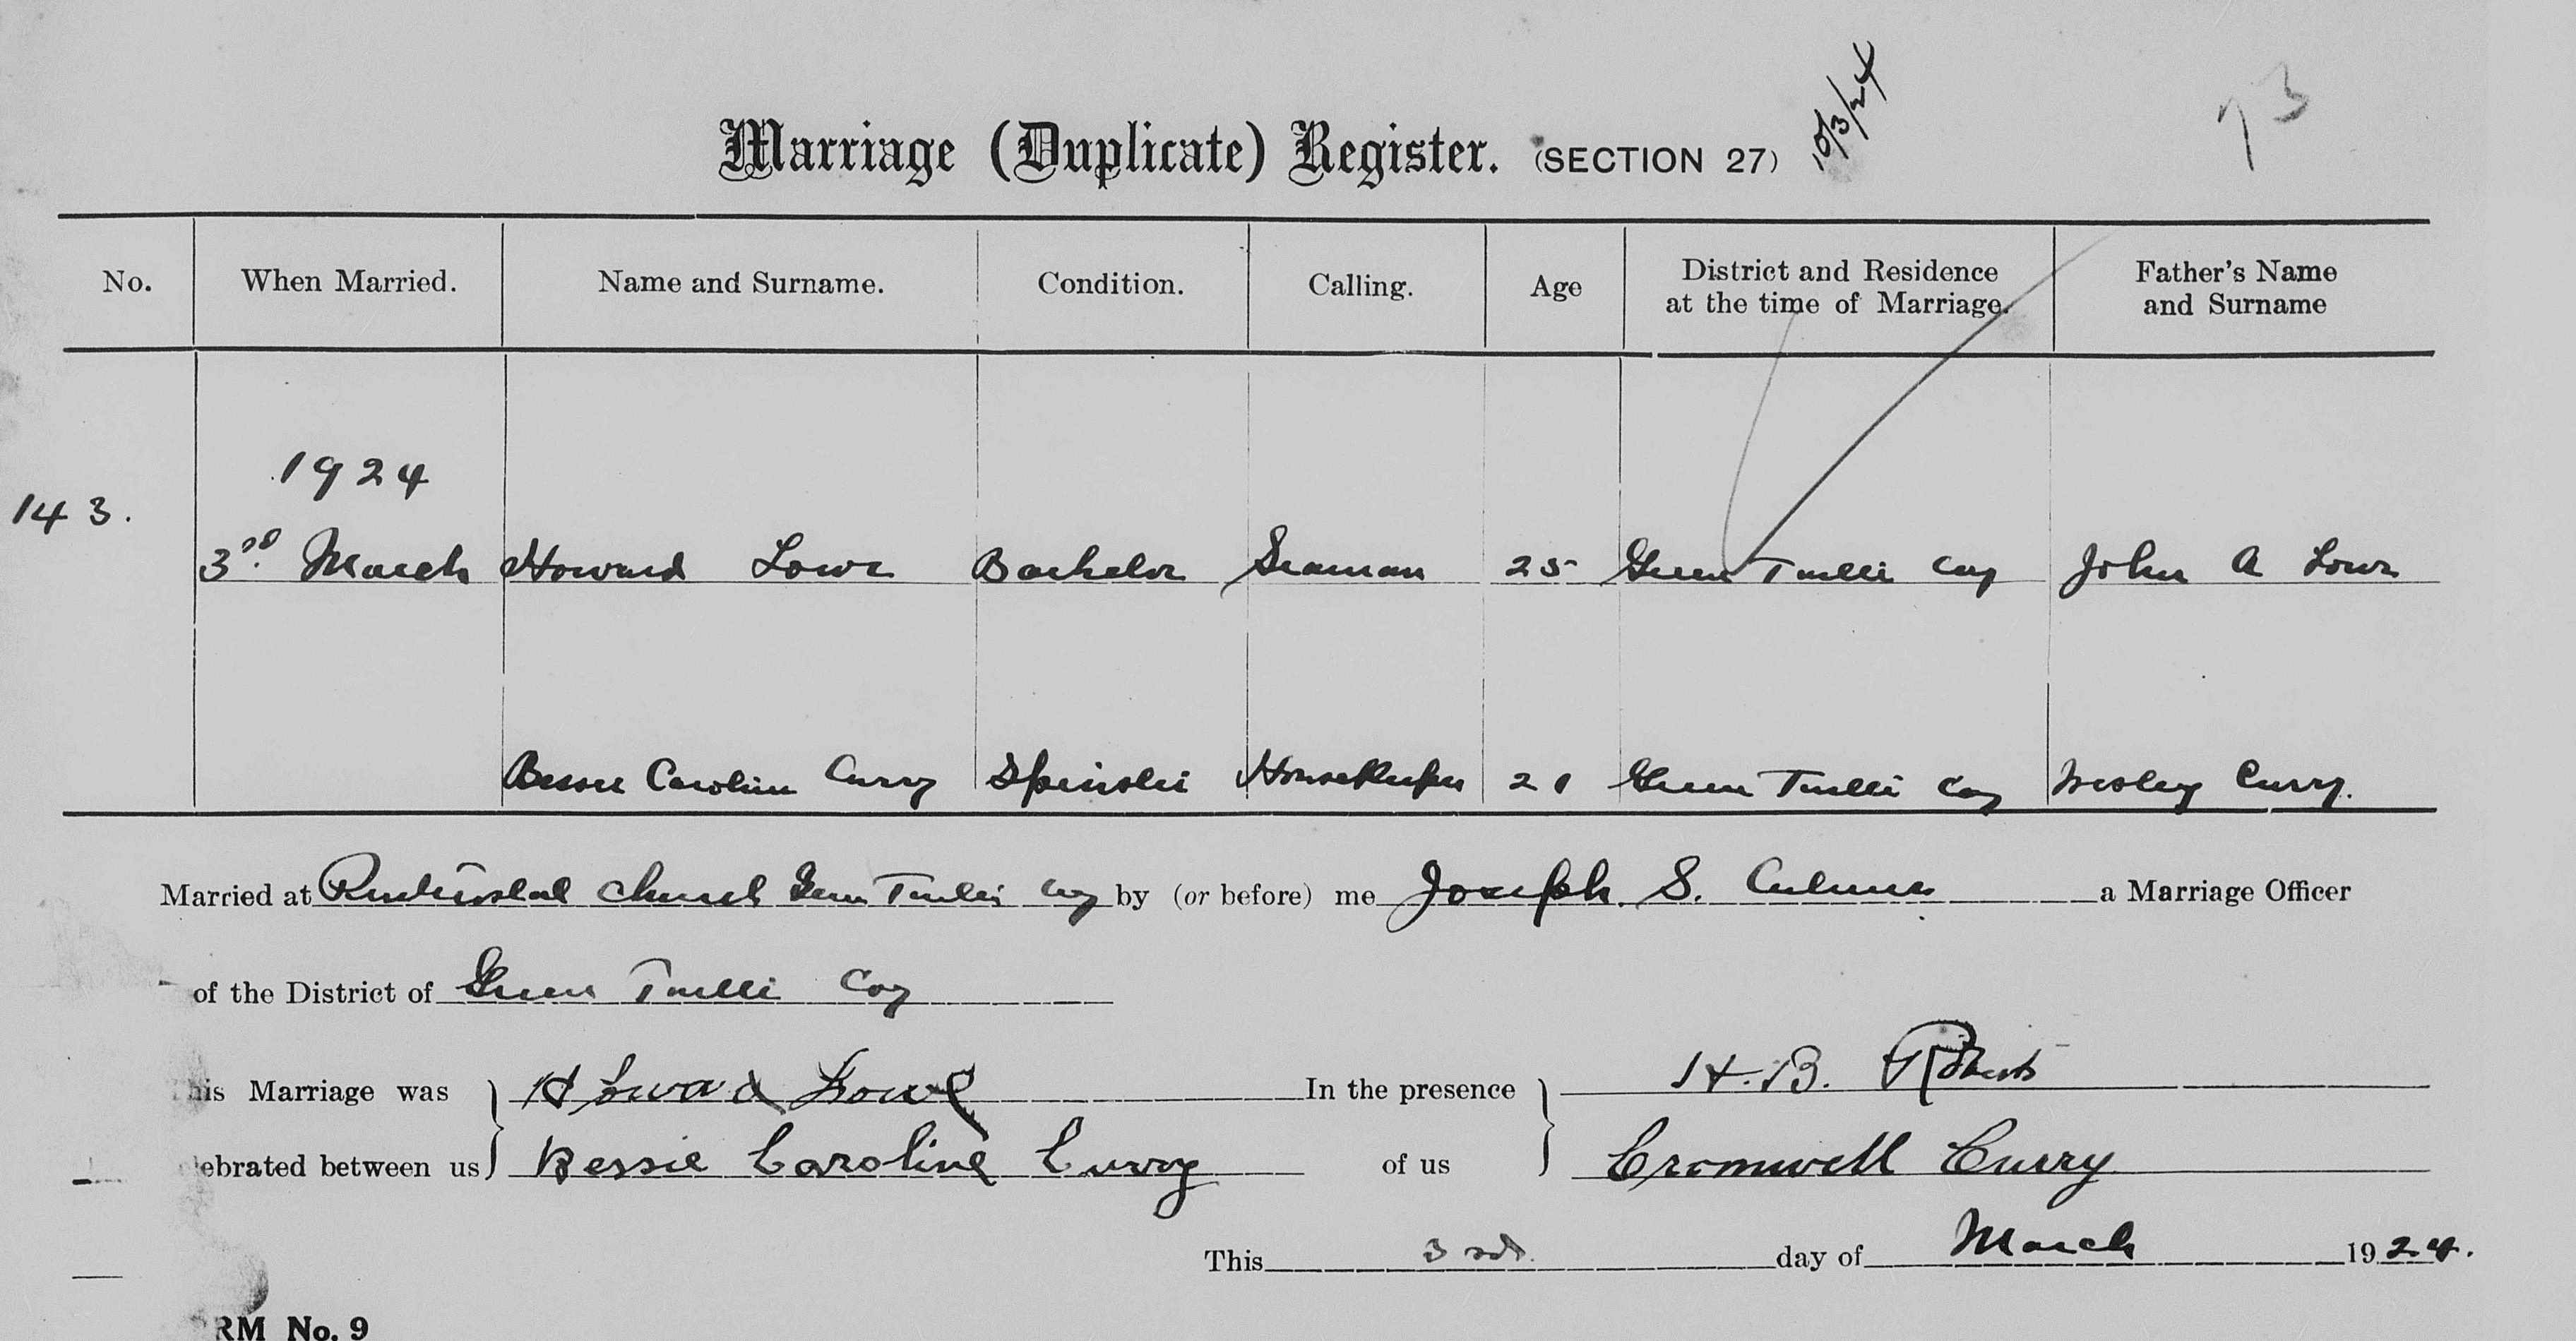 10/3/24
73
Marriage (Duplicate) Register. (SECTION 27)
No. When Married. Name and Surname. Condition. Calling. Age District and Residence at the time of Marriage. Father's Name and Surname
1924
143.
3rd. March Howard Lowe Bachelor Seaman 25 Green Turtle Cay John A Lowe
Bessie Caroline Curry Spinster Housekeeper 21 Green Turtle Cay Wesley Curry.
Married at Church Green Turtle Cay by (or before) me Joseph. S. a Marriage Officer
of the District of Green Turtle Cay
his Marriage was Howard Lowe In the presence H. B. Roberts
lebrated between us Bessie Caroline Curry of us Cromwell Curry
This 3rd. day of March 1924.
RM No. 9